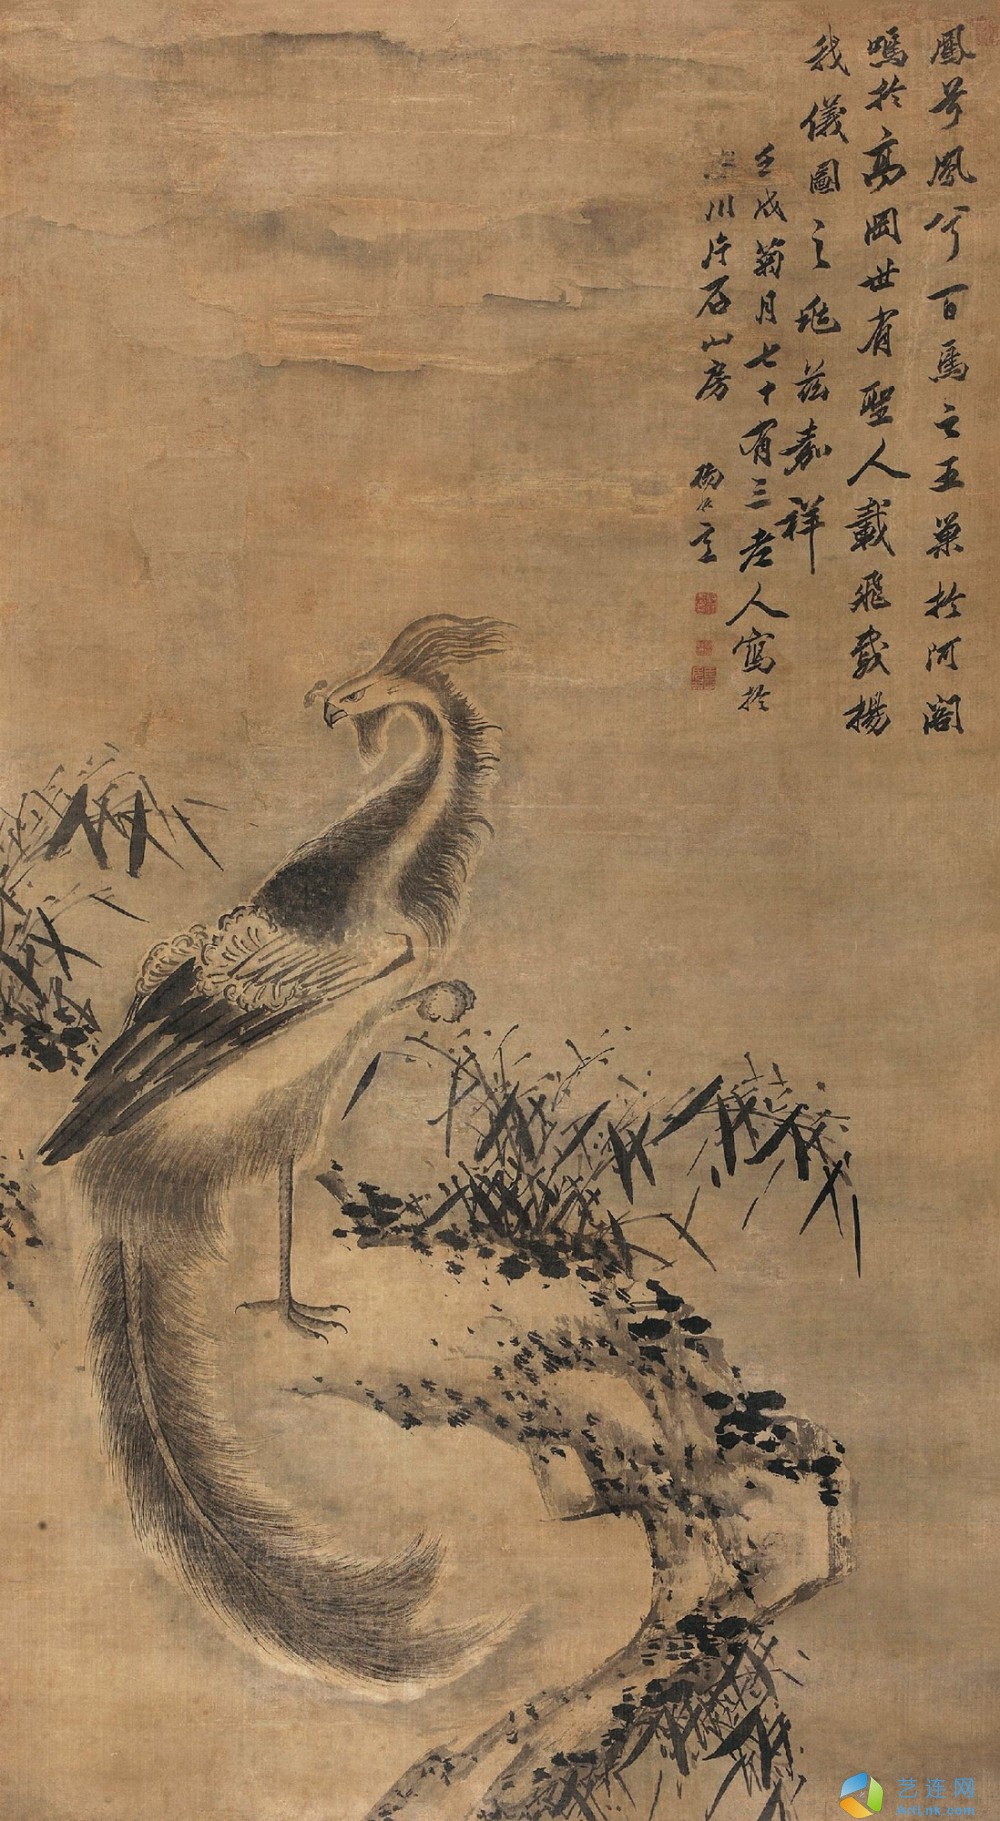 鳳兮鳳兮百鳥之王巢於阿閣
鳴於高岡世有聖人載飛載揚
我儀圖之兆茲嘉祥
壬戌菊月七十有三老人寫於
川片石山房
艺连网